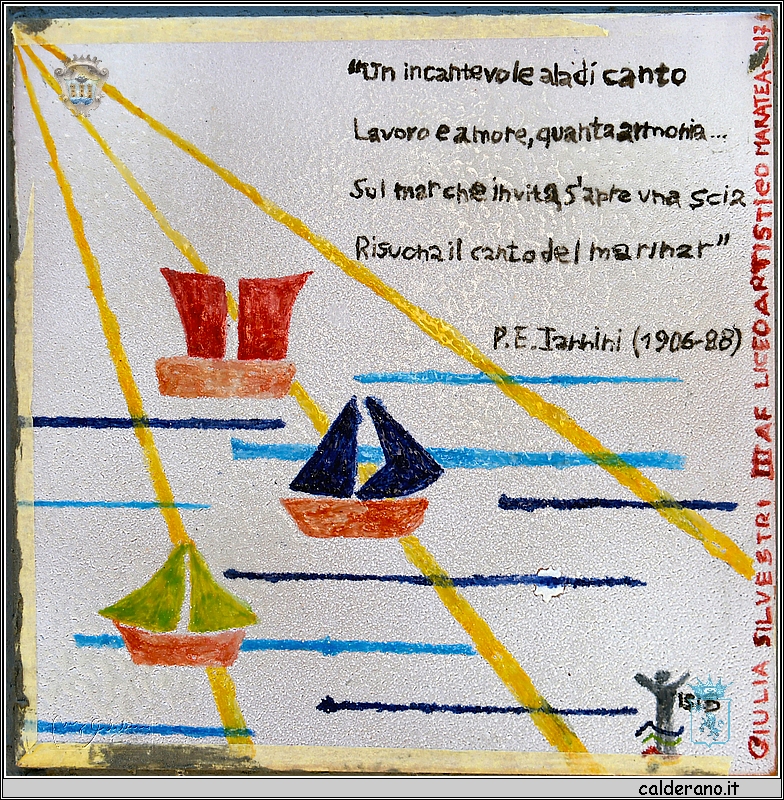 "Un incantevole ala di canto
Lavoro e amore, quanta armonia...
Sul mar che invita, s'apre una scia
Risuona il canto del marinar"
P.E. Iannini (1906-88)
GIULIA SILVESTRI III AF LICEO ARTISTICO MARATEA-2017
ISID
calderano.it